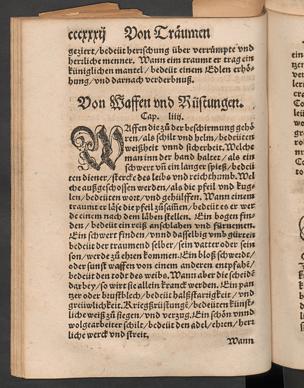 cccxxxij Von Träumen
geziert/bedeüt herrschung über verrümpte vnd
herrliche menner. Wann ein traumt er trag ein
küniglichen mantel/ bedeüt einem Edlen erhö-
hung/vnd darnach verderbnuß.
Von Waffen vnd Rüstungen.
Cap. liiij.
WAffen die zů der beschirmung gehö
ren/als schilt vnd helm/bedeüten
weißheit vnnd sicherheit. Welche
man inn der hand haltet/ als ein
schwert vñ ein langer spieß/ bedeü
ten diener/ sterck des leibs vnd reichthumb. Wel
che außgeschossen werden/als die pfeil vnd kug-
len/ bedeüten wort/vnd gehilffen. Wann einem
traumt er läse die pfeil zůsamen/ bedeüt es er wer
de einem nach dem läben stellen. Ein bogen fin-
den/ bedeüt ein reiß anschlahen vnd fürnemen.
Ein schwert finden/ vnnd dasselbig vmb gürten
bedeüt der traumend selber/ sein vatter oder sein
son/ werde zů ehren kommen. Ein bloß schwerdt/
oder sunst waffen von einem anderen entpfahē/
bedeüt den todt des weibs. Wann aber die scheidē
darbey/ so wirt sie allein kranck werden. Ein pan
tzer oder brustblech/ bedeüt halßstarrigkeit/ vnd
grüwlichkeit. Kriegßrüstung/ bedeüten künst-
liche weiß zů siegen/ vnd verzug. Ein schön vnnd
wolgearbeiter schilt/ bedeüt den adel/ ehren/ herr
liche werck vnd streit.
Wann